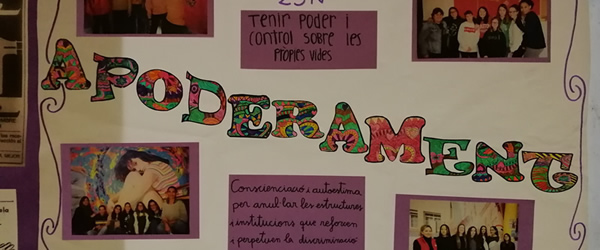 25N
Tenir poder i
control sobre les
pròpies vides
APODERAMENT
Conscienciació i autoestima
per anul·lar les estructures
i institucions que reforcen
i perpetuen la discriminació